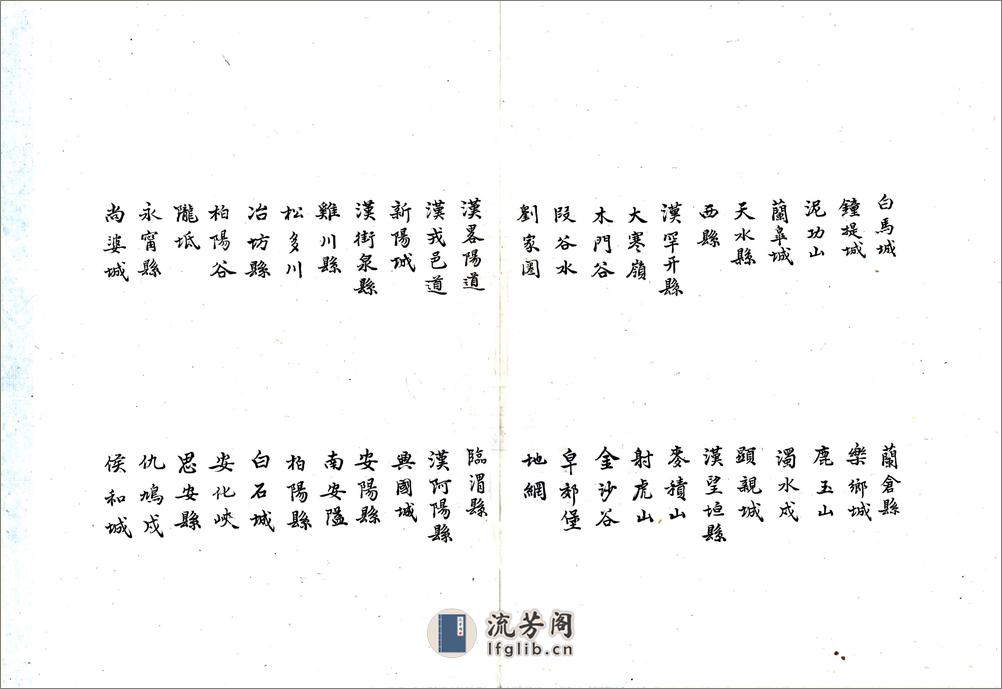 白馬城
蘭倉縣
鐘堤城
樂鄉城
泥功山
鹿玉山
蘭皐城
濁水戍
天水縣
顕親城
西縣
漢望垣縣
漢罕幵縣
麥積山
大寒嶺
射虎山
木門谷
金沙谷
段谷水
皁郊堡
劉家圈
地網
漢畧陽道
臨渭縣
漢戎邑道
漢阿陽縣
新陽城
興國城
漢街泉縣
安陽縣
雞川縣
南安隘
松多川
柏陽縣
冶坊縣
白石城
柏陽谷
安化峽
隴坻
思安縣
永甯縣
仇鳩戍
尚婆城
侯和城
流芳阁
lfglib.cn